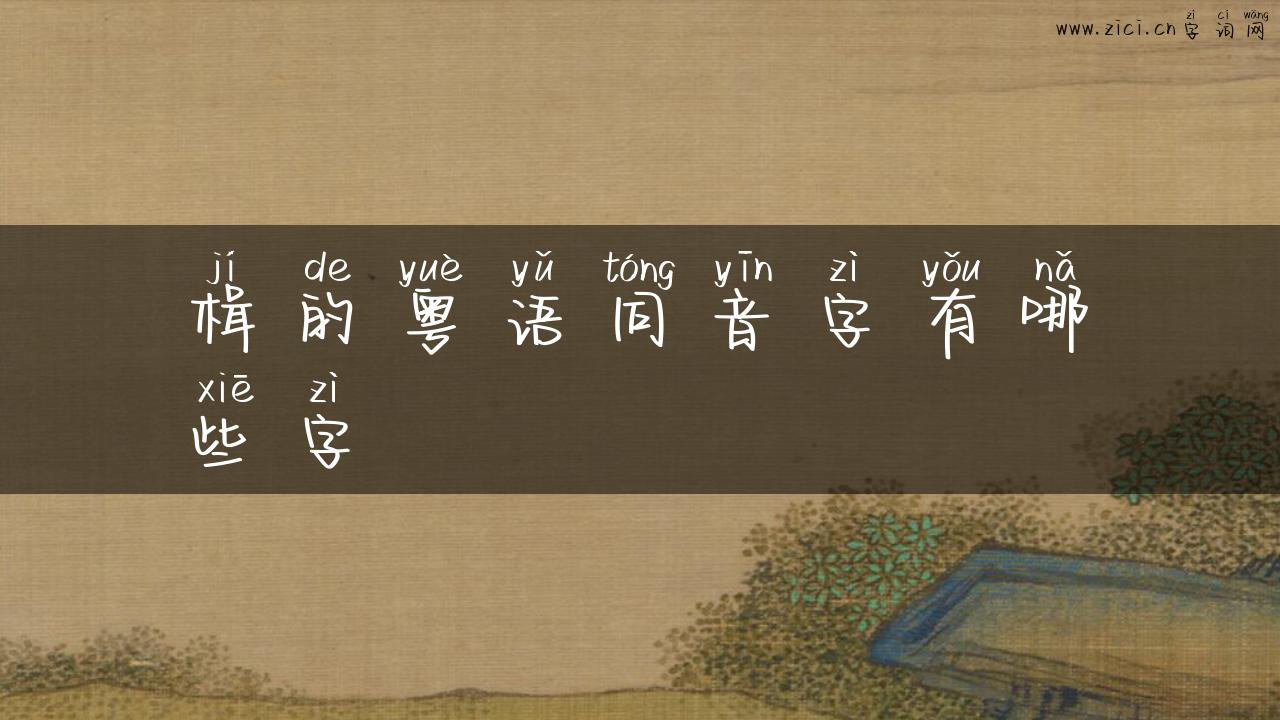 zì cí wǎng
www.zici.cn 字 词 网
jí de yuè yǔ tóng yīn zì yǒu nǎ
楫 的 粤 语 同 音 字 有 哪
xiē zì
些 字